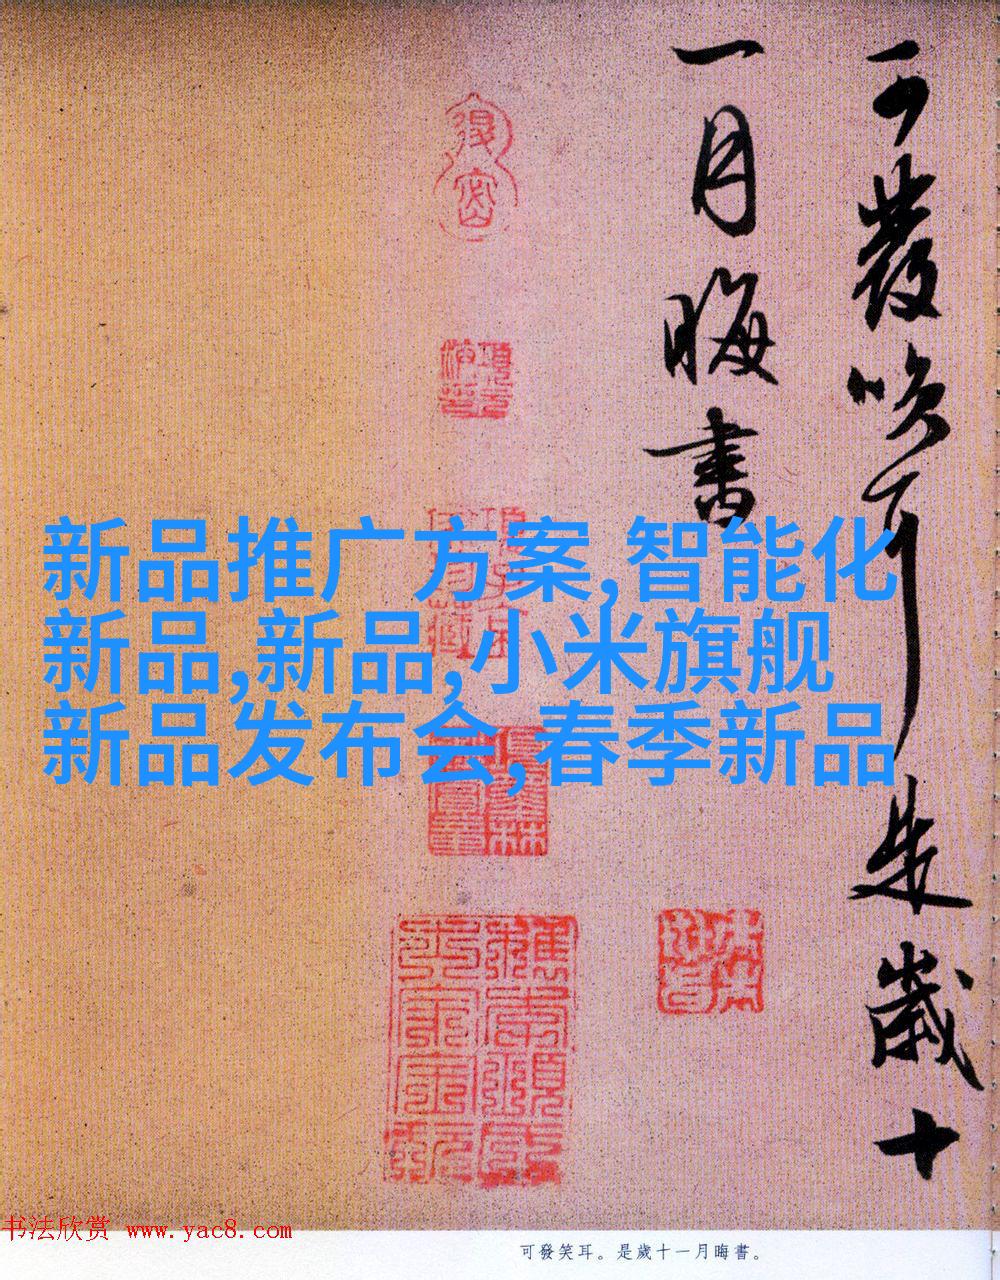 可發笑耳是歲十
一月晦書
新品推广方案,智能化
新品,新品,小米旗舰
新品发布会,春季新品
书法欣赏 www.yac8.com
可發笑耳。是歲十一月晦書。